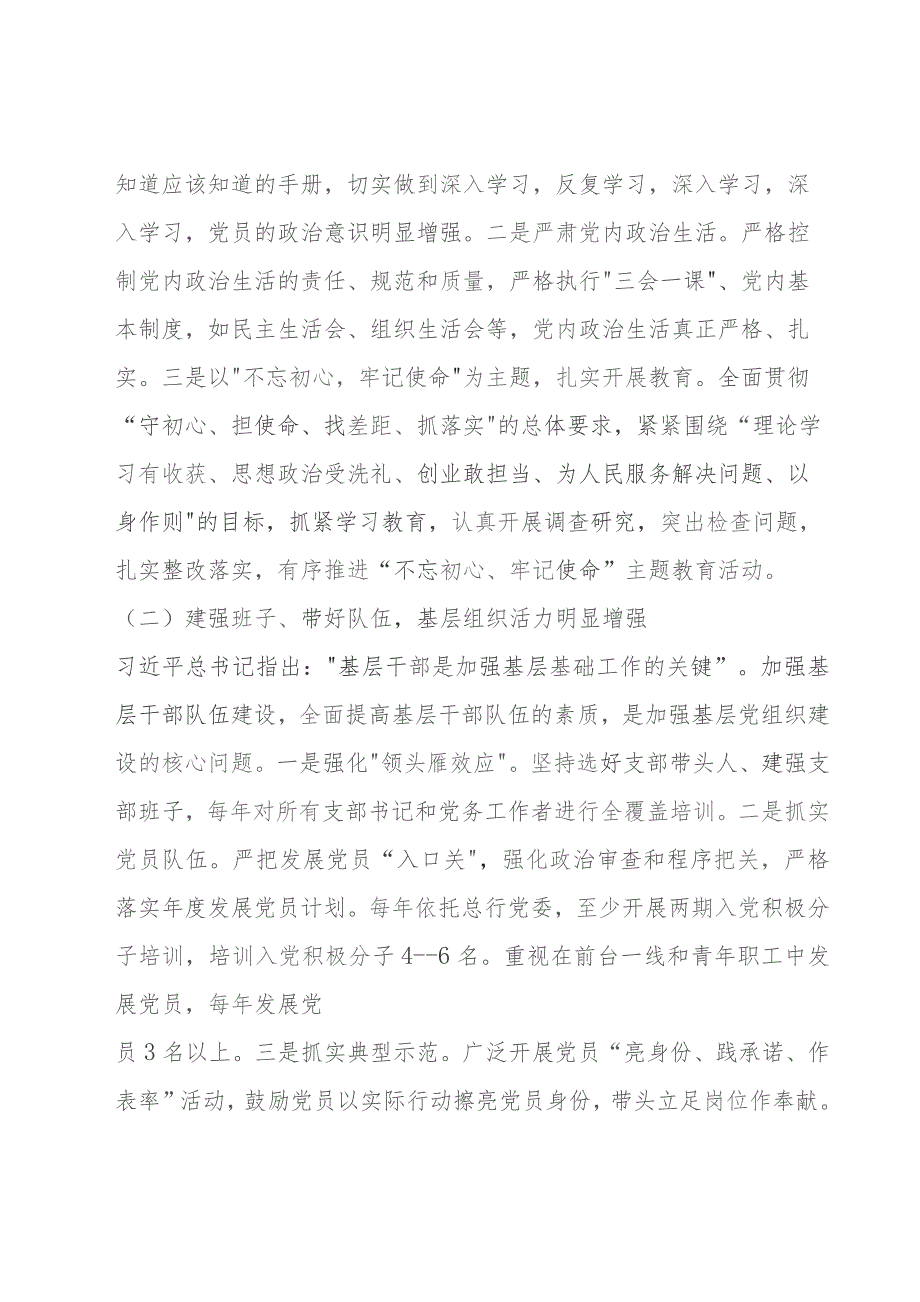 知道应该知道的手册，切实做到深入学习，反复学习，深入学习，深
入学习，党员的政治意识明显增强。二是严肃党内政治生活。严格控
制党内政治生活的责任、规范和质量，严格执行"三会一课"、党内基
本制度，如民主生活会、组织生活会等，党内政治生活真正严格、扎
实。三是以"不忘初心，牢记使命"为主题，扎实开展教育。全面贯彻
“守初心、担使命、找差距、抓落实"的总体要求，紧紧围绕“理论学
习有收获、思想政治受洗礼、创业敢担当、为人民服务解决问题、以
身作则"的目标，抓紧学习教育，认真开展调查研究，突出检查问题，
扎实整改落实，有序推进“不忘初心、牢记使命”主题教育活动。
（二）建强班子、带好队伍，基层组织活力明显增强
习近平总书记指出："基层干部是加强基层基础工作的关键”。加强基
层干部队伍建设，全面提高基层干部队伍的素质，是加强基层党组织建
设的核心问题。一是强化"领头雁效应"。坚持选好支部带头人、建强支
部班子，每年对所有支部书记和党务工作者进行全覆盖培训。二是抓实
党员队伍。严把发展党员“入口关"，强化政治审查和程序把关，严格
落实年度发展党员计划。每年依托总行党委，至少开展两期入党积极分
子培训，培训入党积极分子4--6名。重视在前台一线和青年职工中发
展党员，每年发展党
员3名以上。三是抓实典型示范。广泛开展党员“亮身份、践承诺、作
表率”活动，鼓励党员以实际行动擦亮党员身份，带头立足岗位作奉献。